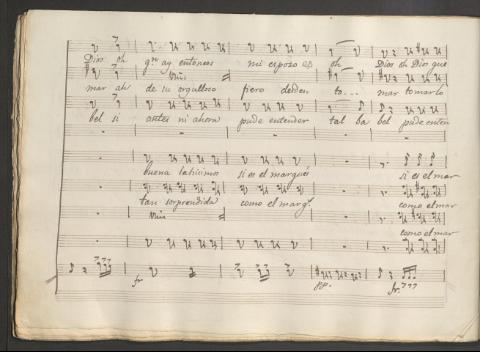 Dios oh qn ay entonces mi esposo es oh Dios oh Dios que
mar ah de su orgulloso fiero desden to... mar tomarlo
bel si antes ni ahora pude entender tal ba bel pude enten
buena latinimos si es el marqués si es el mar
tan sorprendida como el marqs como el mar
como el mar
fr. pp. fr.